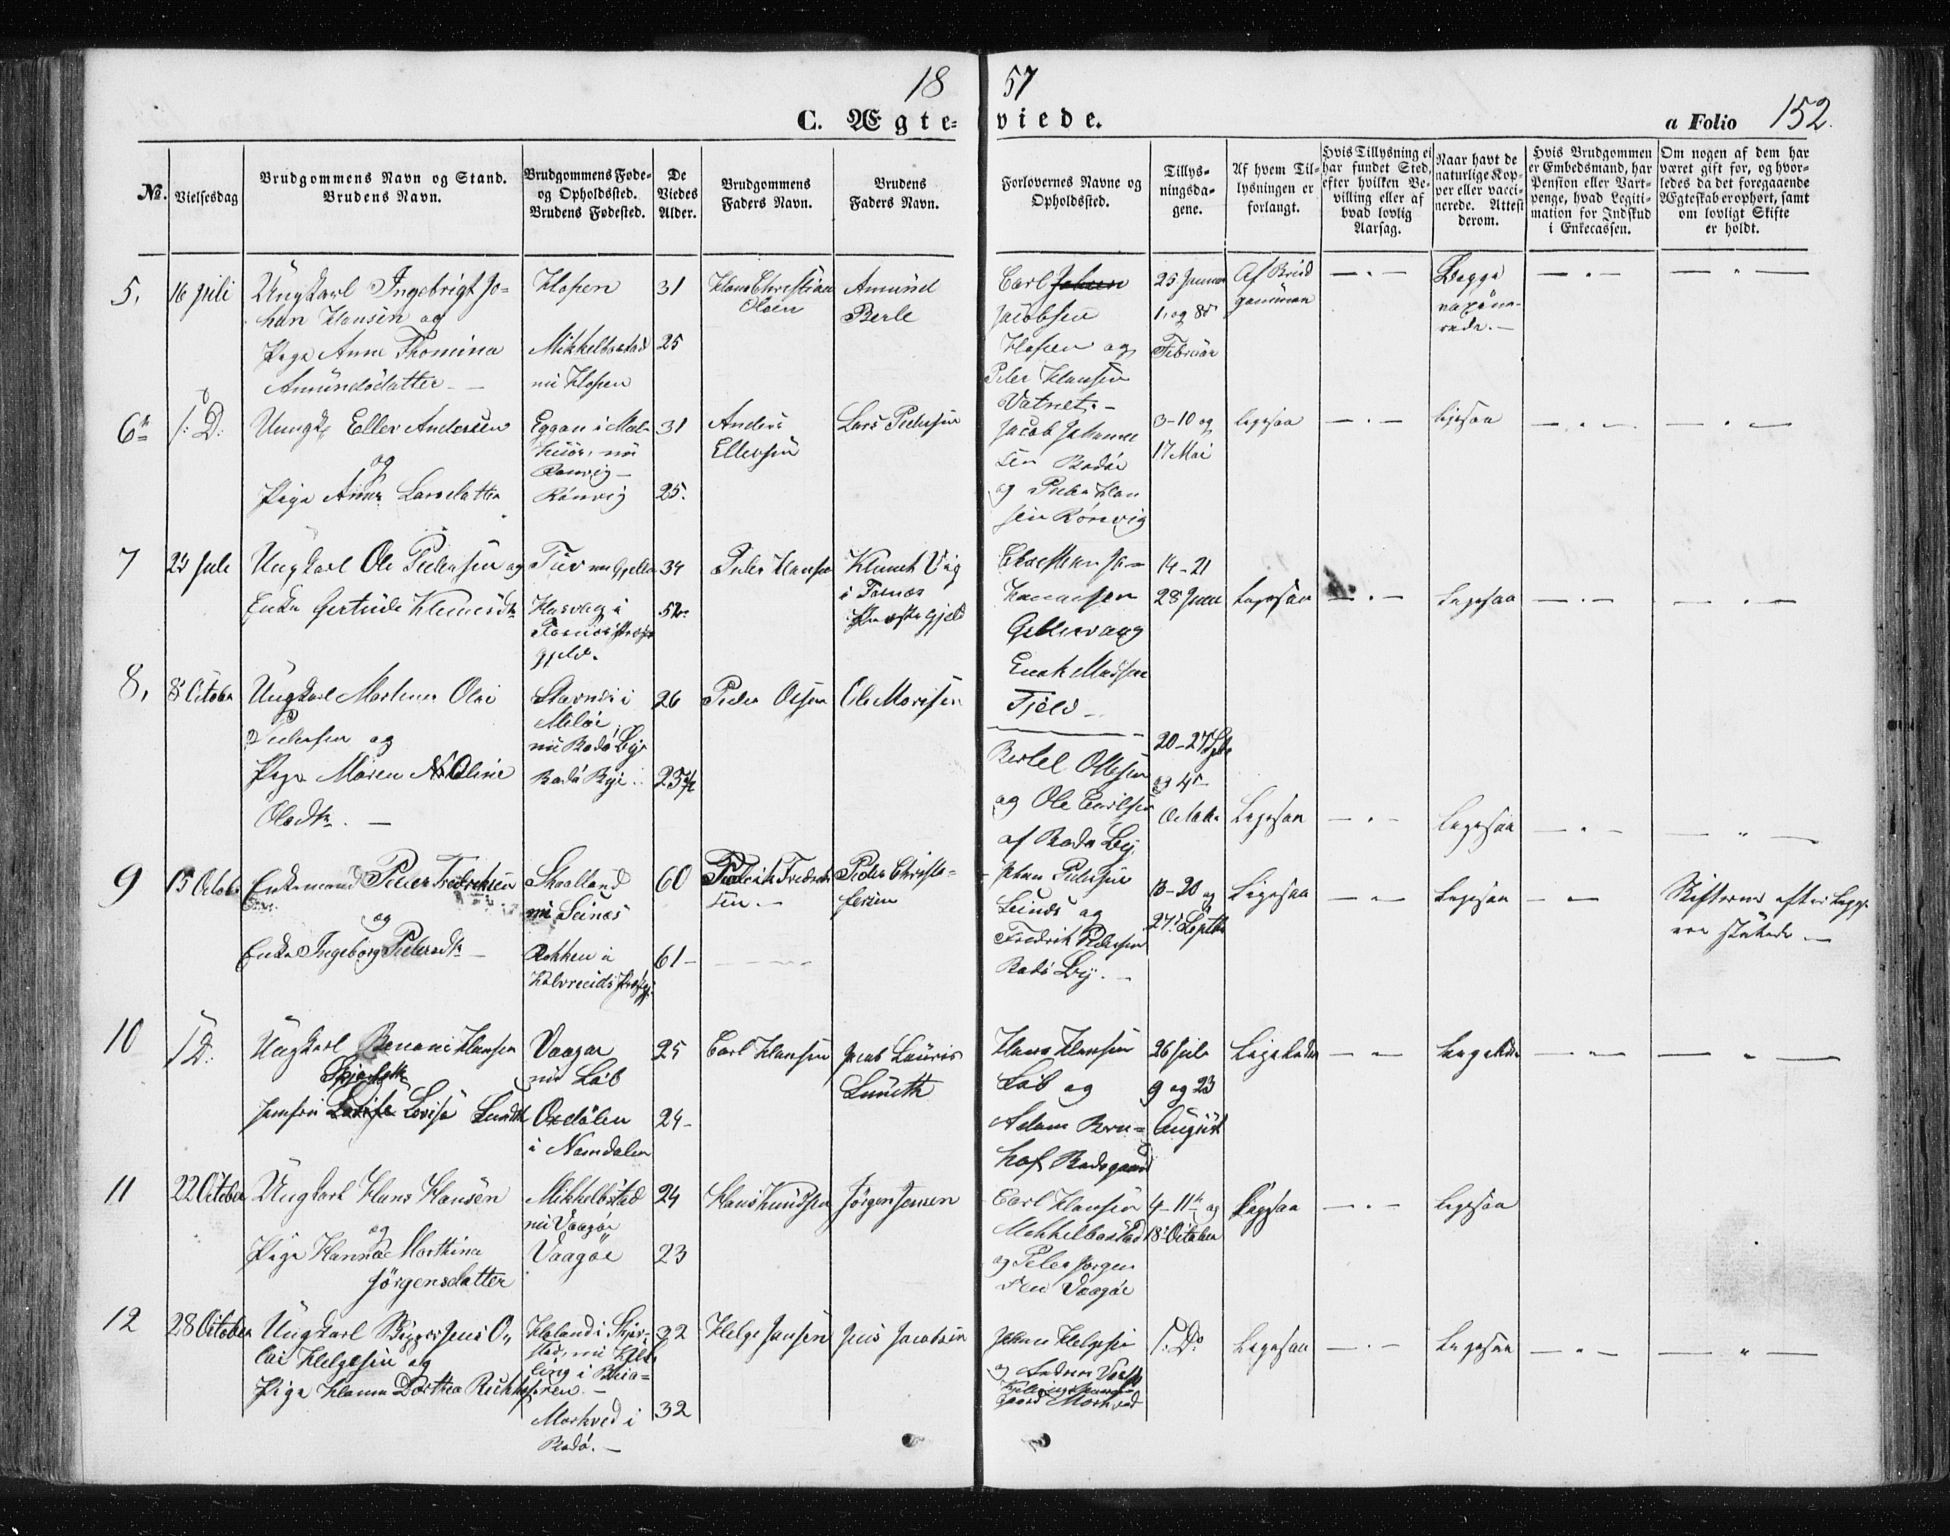 18 57
C. Ægte= viede.
a Folio 152.
No. Vielsesdag
Brudgommens Navn og Stand.
Brudens Navn.
Brudgommens Føde-
og Opholdssted.
Brudens Fødested.
De
Viedes
Alder.
Brudgommens
Faders Navn.
Brudens
Faders Navn.
Forlovernes Navne og
Opholdssted.
Tillys-
ningsda-
gene.
Af hvem Til-
lysningen er
forlangt.
Hvis Tillysning ei
har fundet Sted,
efter hvilken Be-
villing eller af
hvad lovlig
Aarsag.
Naar havt de
naturlige Kop-
per eller vacci-
nerede. Attest
derom.
Hvis Brudgommen
er Embedsmand, har
Pension eller Vart-
penge, hvad Legiti-
mation for Indskud
i Enkecassen.
Om nogen af dem har
været gift før, og hvor-
ledes da det foregaaende
Ægteskab er ophørt, samt
om lovligt Skifte
er holdt.
5, 16 Juli Ungkarl Ingebrigt Jo-
han Hansen og
Pige Anne Thomina
Amundsdatter
Hopen
Mikkelbostad
nu Hopen
31
25
Hans Christian
Olsen
Amund
Berle
Carl
Jacobsen
Hopen og
Peter Hansen
Vatnet.
25 Januar
1. og 8de
Februar
Af Brud
gommen
Begge
vaccine-
rede.
6te I: D: Ungk. Eller Andersen
og
Pige Anne Larsdatter
Eggan i Mel-
huus, nu
Rønvig
Rønvig
31
25.
Anders
Ellersen
Lars Pedersen
Jacob Johanne
sen Bodøe
og Peder Han
sen Rønvig
3-10 og
17 Mai
ligesaa
ligesaa
7 23 Juli Ungkarl Ole Pedersen og
Enke Gertrude
Tuv nu Gjelle
i
34
52
Peder Hansen
Vig
i Fosnæs
Præstegjeld
14-21
28 Juni
Ligesaa
Ligesaa
Fjeld
8, 8 October Ungkarl Martinus Olai
Pedersen og
Pige Maren Oline
Olsdtr.
Støvnes i
Meløe
nu Bodø Bye
Bodø Bye
26
25 3/4
Peder Olsen
Ole Morisen
Bertel Ollesen
og Ole
af Bodø By.
20-27 Sept
og 4de
October
Ligesaa
Ligesaa
9 15 Octobr Enkemand Peder Fredriksen
og
Enke Ingeborg Pedersdtr
Skaalland
nu Seines
60
61
Fredrik Fredrik
sen.
Peder Christo-
fersen
Johan Pedersen
Seines og
Fredrik Pedersen
Bodø By.
13-20 og
27de Septbr
Ligesaa
Ligesaa
Skifterne efter begge
ere sluttede
10 I D. Ungkarl Benoni Hansen
Jomfru Lovise Lundth
Vaagøe
nu Løb
i Namdalen
25
24
Carl Hansen
Jacob Lauris
Lundth
Hans Hansen
Løb og
Adam Brun=
hof Bodøgaard
26 Juli
9 og 23
August
Ligeledes
Ligeledes
11 22 October Ungkarl Hans Hansen
og
Pige Hanna Marthina
Jørgensdatter
Mikkelbostad
nu Vaagøe
Vaagøe
24
23
Hans Knudsen
Jørgen Jensen
Carl Hansen
Mikkelbostad
og Peter Jørgen
sen Vaagøe
4-11te og
18de October
Ligesaa
Ligesaa
12 28 October Ungkarl Birger Jens O-
lai Helgesen og
Pige Hanna Dorthea
Høland i Skjer-
stad, nu Kjel-
ling i
Mørkved i
Bodø.
32
32
Helge Jansen
Jens Jacobsen
Johan Helgesen
og
I: D:
Ligesaa
Ligesaa